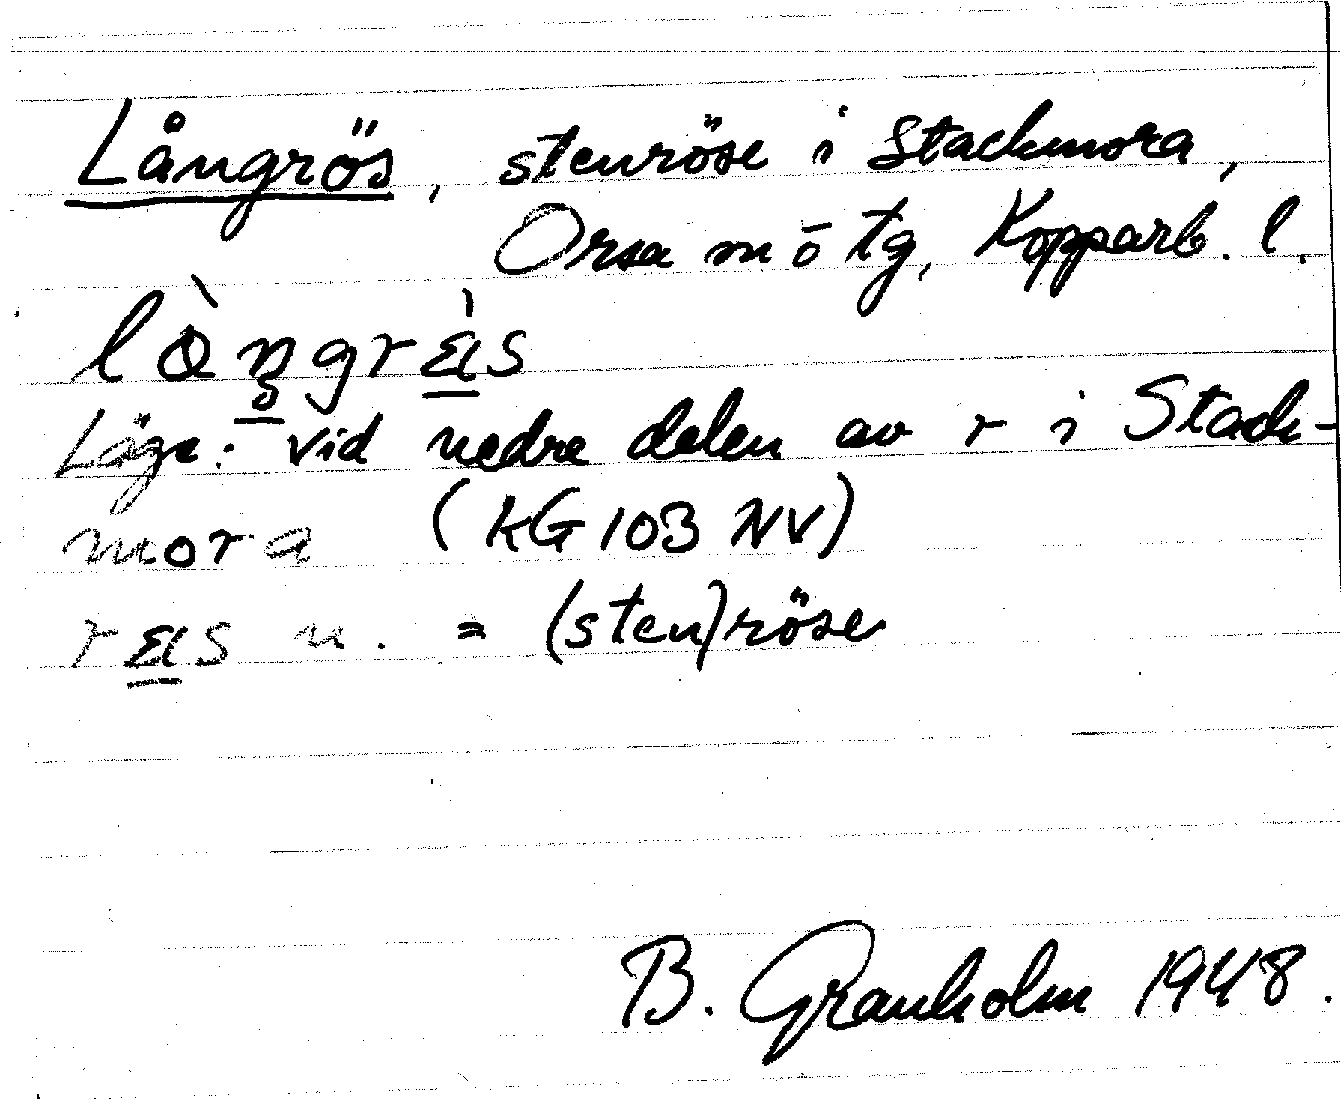 Långrös, stenröse i Stackmora,
Orsa m ō tg, Kopparb. l.
lòŋgrɛ̀ıs
Läge: vid nedre delen av r i Stack-
mora (KG 103 NV)
rɛıs n. = (sten)röse
B. Granholm 1948.